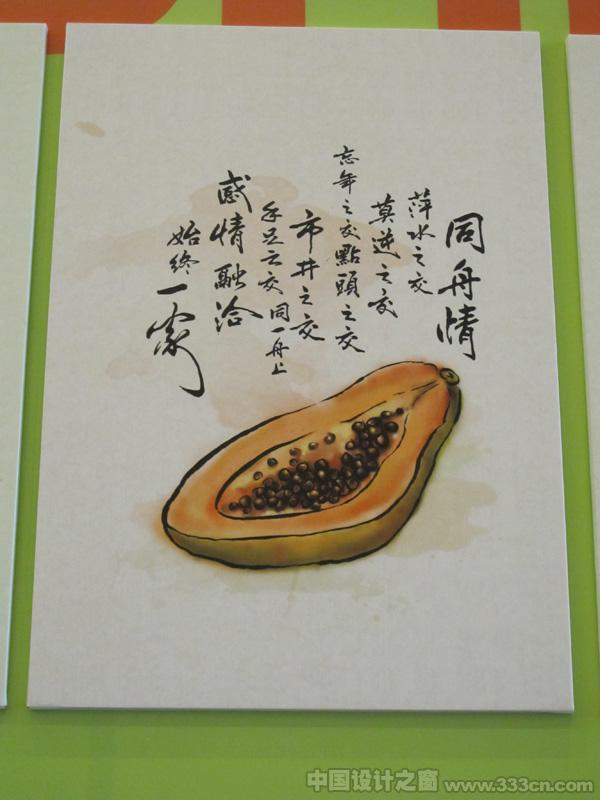 同舟情
萍水之交
莫逆之交
忘年之交點頭之交
市井之交
手足之交同一舟上
感情融洽
始終一家
中国设计之窗 www.333cn.com